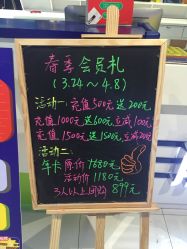 春季会员礼
(3.24～4.8)
活动一:充值500元送200元
充值1000元送600元立减100元
充值1500元送1500元立减200元
活动二:
年卡 原价7680元
活动价1180元
3人以上团购899元